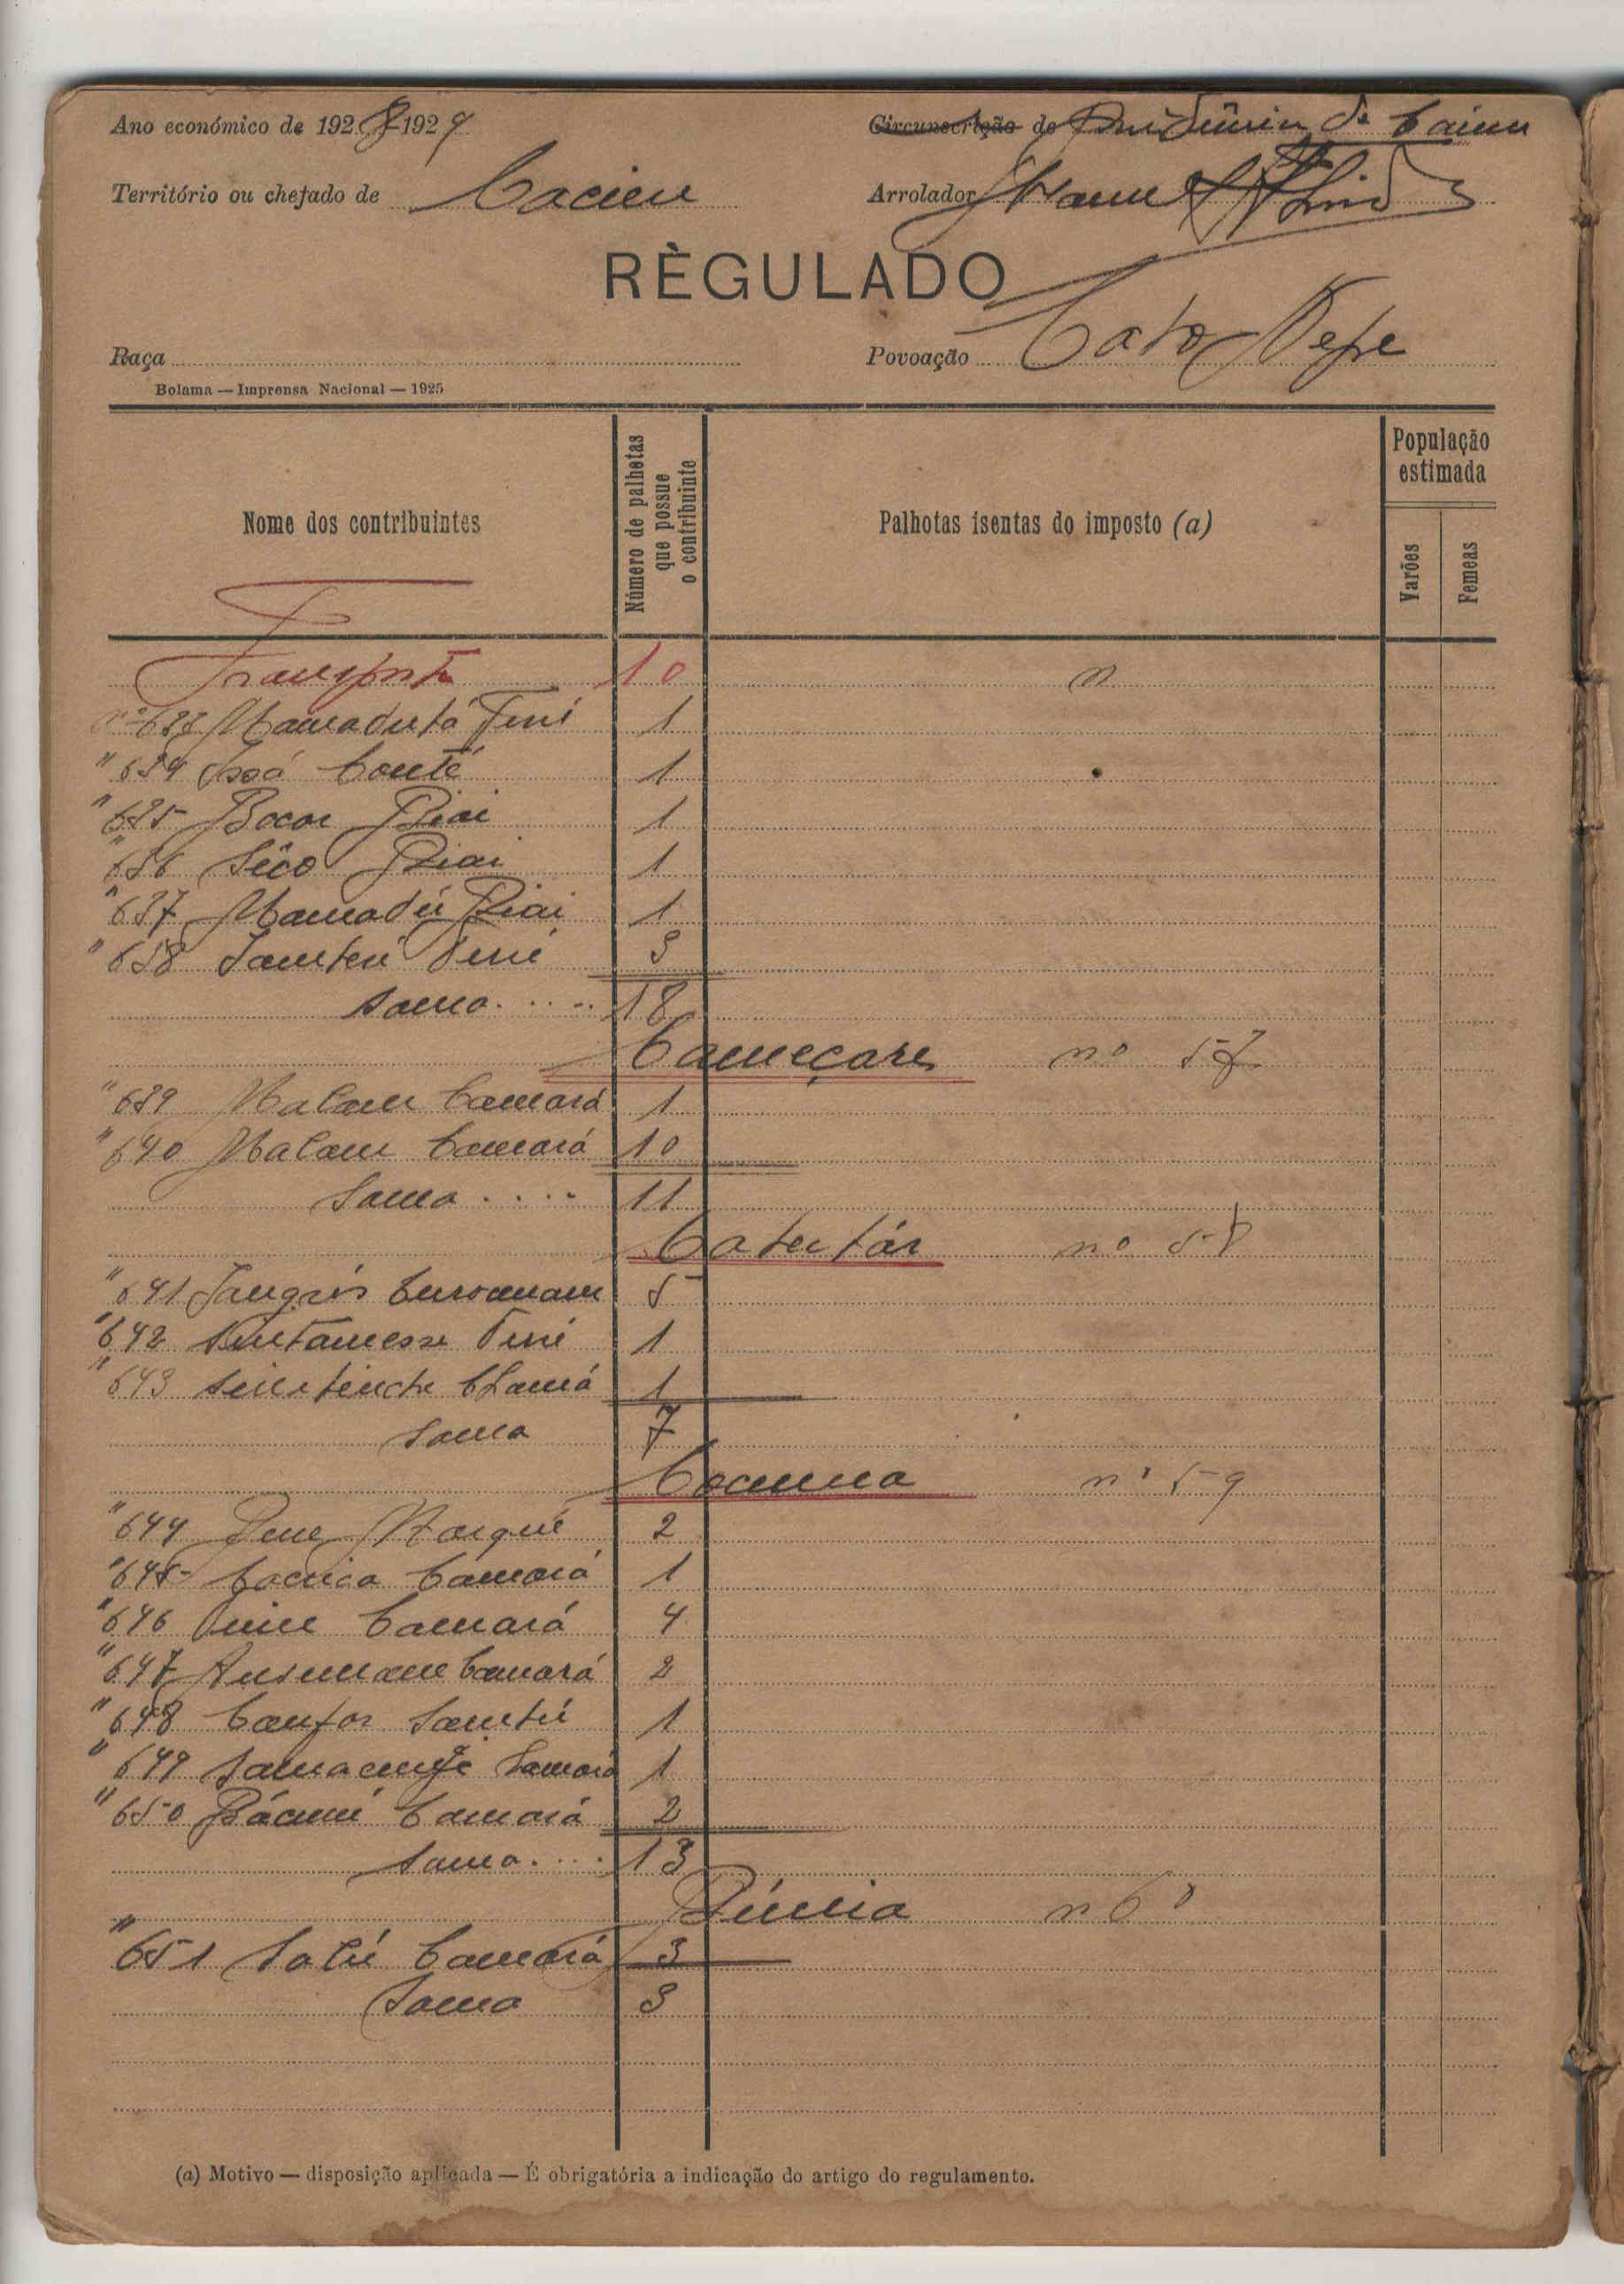 Ano económico de 1928-1929
Circunscrição de Residência de Cacine
Território ou chefado de Cacine
Arrolador Manuel
RÈGULADO
Raça
Povoação Cato Nepe
Bolama — Imprensa Nacional — 1925
Nome dos contribuintes
Número de palhotas que possue o contribuinte
Palhotas isentas do imposto (a)
População estimada
Varões
Femeas
Transporte 10 n
nº 633 Mamadu Iá Feni 1
" 634 Issá Conté 1
" 635 Bocar Biai 1
" 636 Sêco Biai 1
" 637 Mamadú Biai 1
" 638 3
Soma..... 18
Cameçare nº 57
" 639 Malam Camará 1
" 640 Malam Camará 10
Soma.... 11
nº 58
" 641 5
" 642 1
" 643 1
Soma 7
Camina nº 59
" 644 2
" 645 Camará 1
" 646 Camará 4
" 647 Ansumane Camará 2
" 648 1
" 649 Camará 1
" 650 Camará 2
Soma.... 13
nº 60
" 651 Salú Camará 3
Soma 3
(a) Motivo — disposição aplicada — É obrigatória a indicação do artigo do regulamento.